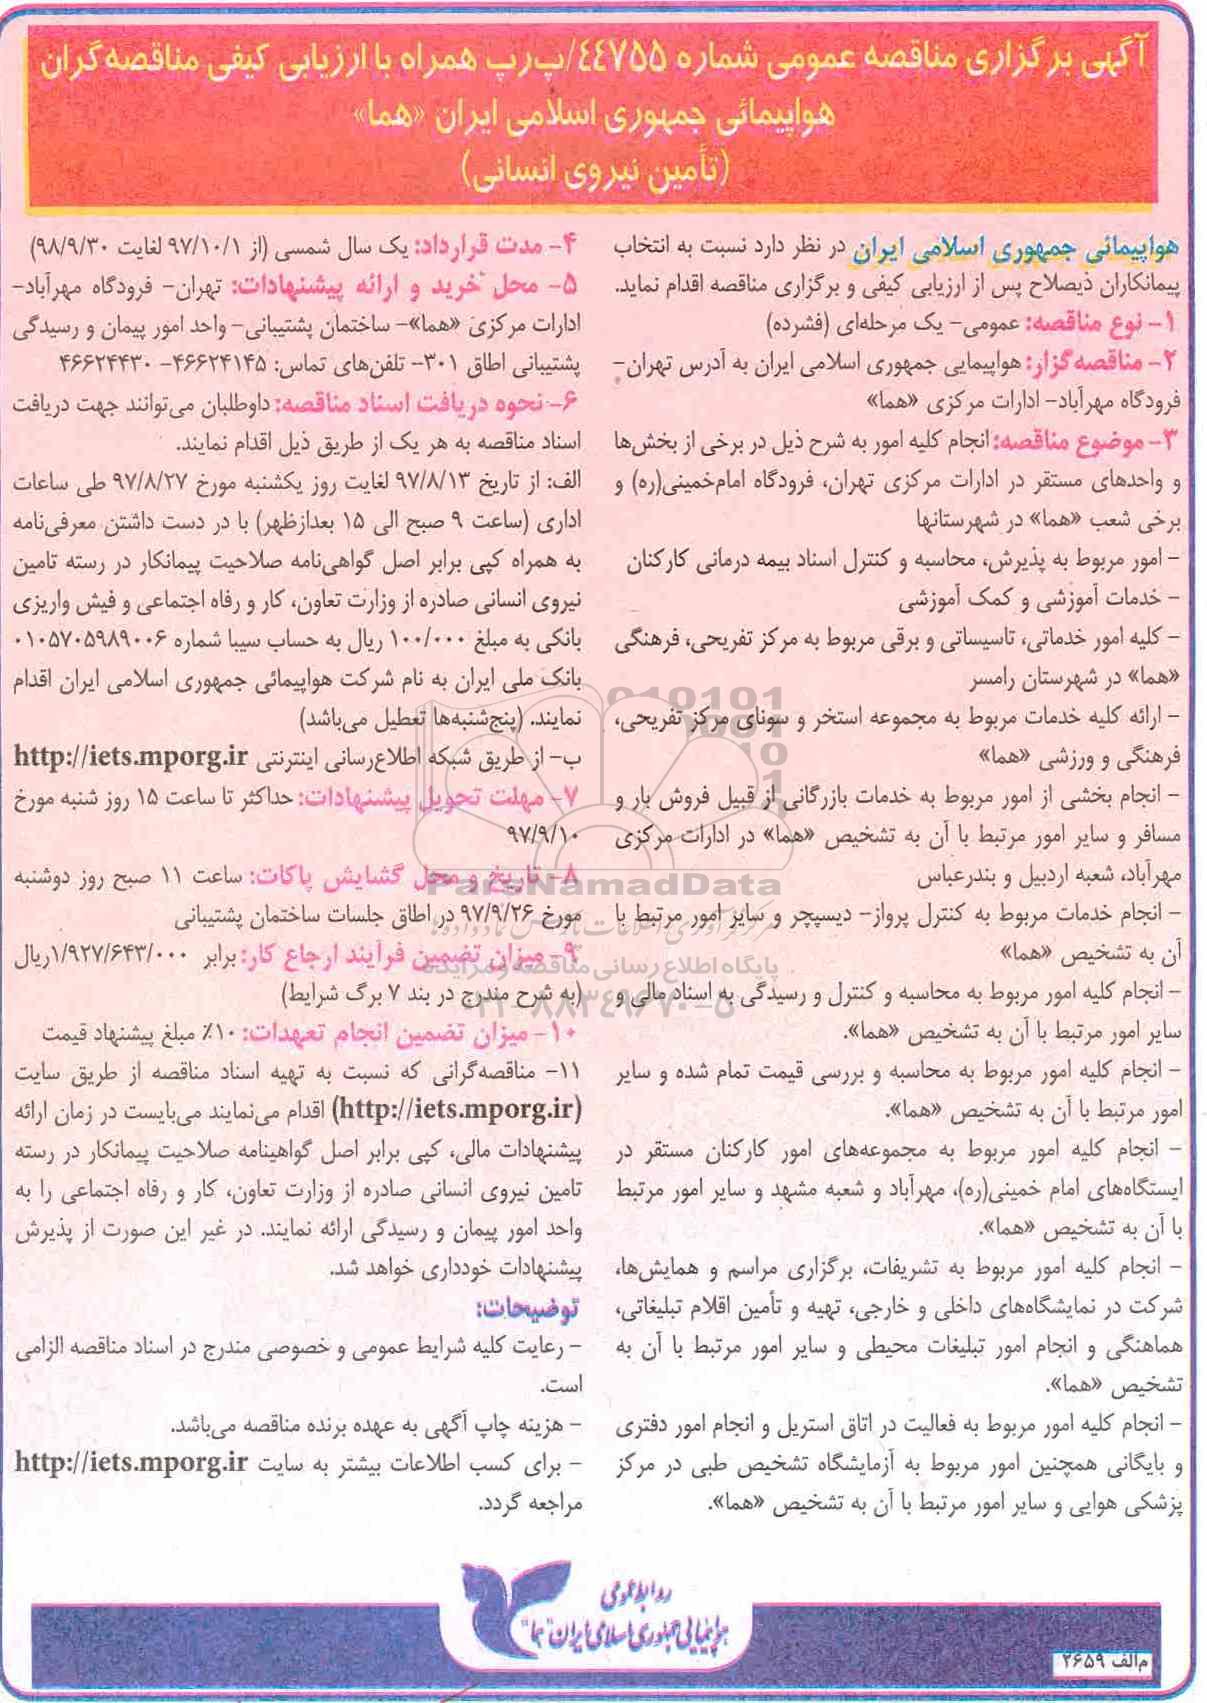 آگهی برگزاری مناقصه عمومی شماره ۴۴۷۵۵/پ‌رپ همراه با ارزیابی کیفی مناقصه‌گران
هواپیمائی جمهوری اسلامی ایران «هما»
(تأمین نیروی انسانی)
هواپیمائی جمهوری اسلامی ایران در نظر دارد نسبت به انتخاب
پیمانکاران ذیصلاح پس از ارزیابی کیفی و برگزاری مناقصه اقدام نماید.
۱- نوع مناقصه: عمومی- یک مرحله‌ای (فشرده)
۲- مناقصه‌گزار: هواپیمایی جمهوری اسلامی ایران به آدرس تهران-
فرودگاه مهرآباد- ادارات مرکزی «هما»
۳- موضوع مناقصه: انجام کلیه امور به شرح ذیل در برخی از بخش‌ها
و واحدهای مستقر در ادارات مرکزی تهران، فرودگاه امام‌خمینی(ره) و
برخی شعب «هما» در شهرستانها
- امور مربوط به پذیرش، محاسبه و کنترل اسناد بیمه درمانی کارکنان
- خدمات آموزشی و کمک آموزشی
- کلیه امور خدماتی، تاسیساتی و برقی مربوط به مرکز تفریحی، فرهنگی
«هما» در شهرستان رامسر
- ارائه کلیه خدمات مربوط به مجموعه استخر و سونای مرکز تفریحی،
فرهنگی و ورزشی «هما»
- انجام بخشی از امور مربوط به خدمات بازرگانی از قبیل فروش بار و
مسافر و سایر امور مرتبط با آن به تشخیص «هما» در ادارات مرکزی
مهرآباد، شعبه اردبیل و بندرعباس
- انجام خدمات مربوط به کنترل پرواز- دیسپچر و سایر امور مرتبط با
آن به تشخیص «هما»
- انجام کلیه امور مربوط به محاسبه و کنترل و رسیدگی به اسناد مالی و
سایر امور مرتبط با آن به تشخیص «هما».
- انجام کلیه امور مربوط به محاسبه و بررسی قیمت تمام شده و سایر
امور مرتبط با آن به تشخیص «هما».
- انجام کلیه امور مربوط به مجموعه‌های امور کارکنان مستقر در
ایستگاه‌های امام خمینی(ره)، مهرآباد و شعبه مشهد و سایر امور مرتبط
با آن به تشخیص «هما».
- انجام کلیه امور مربوط به تشریفات، برگزاری مراسم و همایش‌ها،
شرکت در نمایشگاه‌های داخلی و خارجی، تهیه و تأمین اقلام تبلیغاتی،
هماهنگی و انجام امور تبلیغات محیطی و سایر امور مرتبط با آن به
تشخیص «هما».
- انجام کلیه امور مربوط به فعالیت در اتاق استریل و انجام امور دفتری
و بایگانی همچنین امور مربوط به آزمایشگاه تشخیص طبی در مرکز
پزشکی هوایی و سایر امور مرتبط با آن به تشخیص «هما».
۴- مدت قرارداد: یک سال شمسی (از ۹۷/۱۰/۱ لغایت ۹۸/۹/۳۰)
۵- محل خرید و ارائه پیشنهادات: تهران- فرودگاه مهرآباد-
ادارات مرکزی «هما»- ساختمان پشتیبانی- واحد امور پیمان و رسیدگی
پشتیبانی اطاق ۳۰۱- تلفن‌های تماس: ۴۶۶۲۴۱۴۵- ۴۶۶۲۴۴۳۰
۶- نحوه دریافت اسناد مناقصه: داوطلبان می‌توانند جهت دریافت
اسناد مناقصه به هر یک از طریق ذیل اقدام نمایند.
الف: از تاریخ ۹۷/۸/۱۳ لغایت روز یکشنبه مورخ ۹۷/۸/۲۷ طی ساعات
اداری (ساعت ۹ صبح الی ۱۵ بعدازظهر) با در دست داشتن معرفی‌نامه
به همراه کپی برابر اصل گواهی‌نامه صلاحیت پیمانکار در رسته تامین
نیروی انسانی صادره از وزارت تعاون، کار و رفاه اجتماعی و فیش واریزی
بانکی به مبلغ ۱۰۰/۰۰۰ ریال به حساب سیبا شماره ۰۱۰۵۷۰۵۹۸۹۰۰۶
بانک ملی ایران به نام شرکت هواپیمائی جمهوری اسلامی ایران اقدام
نمایند. (پنج‌شنبه‌ها تعطیل می‌باشد)
ب- از طریق شبکه اطلاع‌رسانی اینترنتی http://iets.mporg.ir
۷- مهلت تحویل پیشنهادات: حداکثر تا ساعت ۱۵ روز شنبه مورخ
۹۷/۹/۱۰
۸- تاریخ و محل گشایش پاکات: ساعت ۱۱ صبح روز دوشنبه
مورخ ۹۷/۹/۲۶ در اطاق جلسات ساختمان پشتیبانی
۹- میزان تضمین فرآیند ارجاع کار: برابر ۱/۹۲۷/۶۴۳/۰۰۰ریال
(به شرح مندرج در بند ۷ برگ شرایط)
۱۰- میزان تضمین انجام تعهدات: ۱۰٪ مبلغ پیشنهاد قیمت
۱۱- مناقصه‌گرانی که نسبت به تهیه اسناد مناقصه از طریق سایت
(http://iets.mporg.ir) اقدام می‌نمایند می‌بایست در زمان ارائه
پیشنهادات مالی، کپی برابر اصل گواهینامه صلاحیت پیمانکار در رسته
تامین نیروی انسانی صادره از وزارت تعاون، کار و رفاه اجتماعی را به
واحد امور پیمان و رسیدگی ارائه نمایند. در غیر این صورت از پذیرش
پیشنهادات خودداری خواهد شد.
توضیحات:
- رعایت کلیه شرایط عمومی و خصوصی مندرج در اسناد مناقصه الزامی
است.
- هزینه چاپ آگهی به عهده برنده مناقصه می‌باشد.
- برای کسب اطلاعات بیشتر به سایت http://iets.mporg.ir
مراجعه گردد.
ParsNamadData
پایگاه اطلاع رسانی مناقصه و مزایده
۰۲۱-۸۸۳۴۹۶۷۰-۵
روابط عمومی
هواپیمائی جمهوری اسلامی ایران "هما"
م‌الف ۲۶۵۹